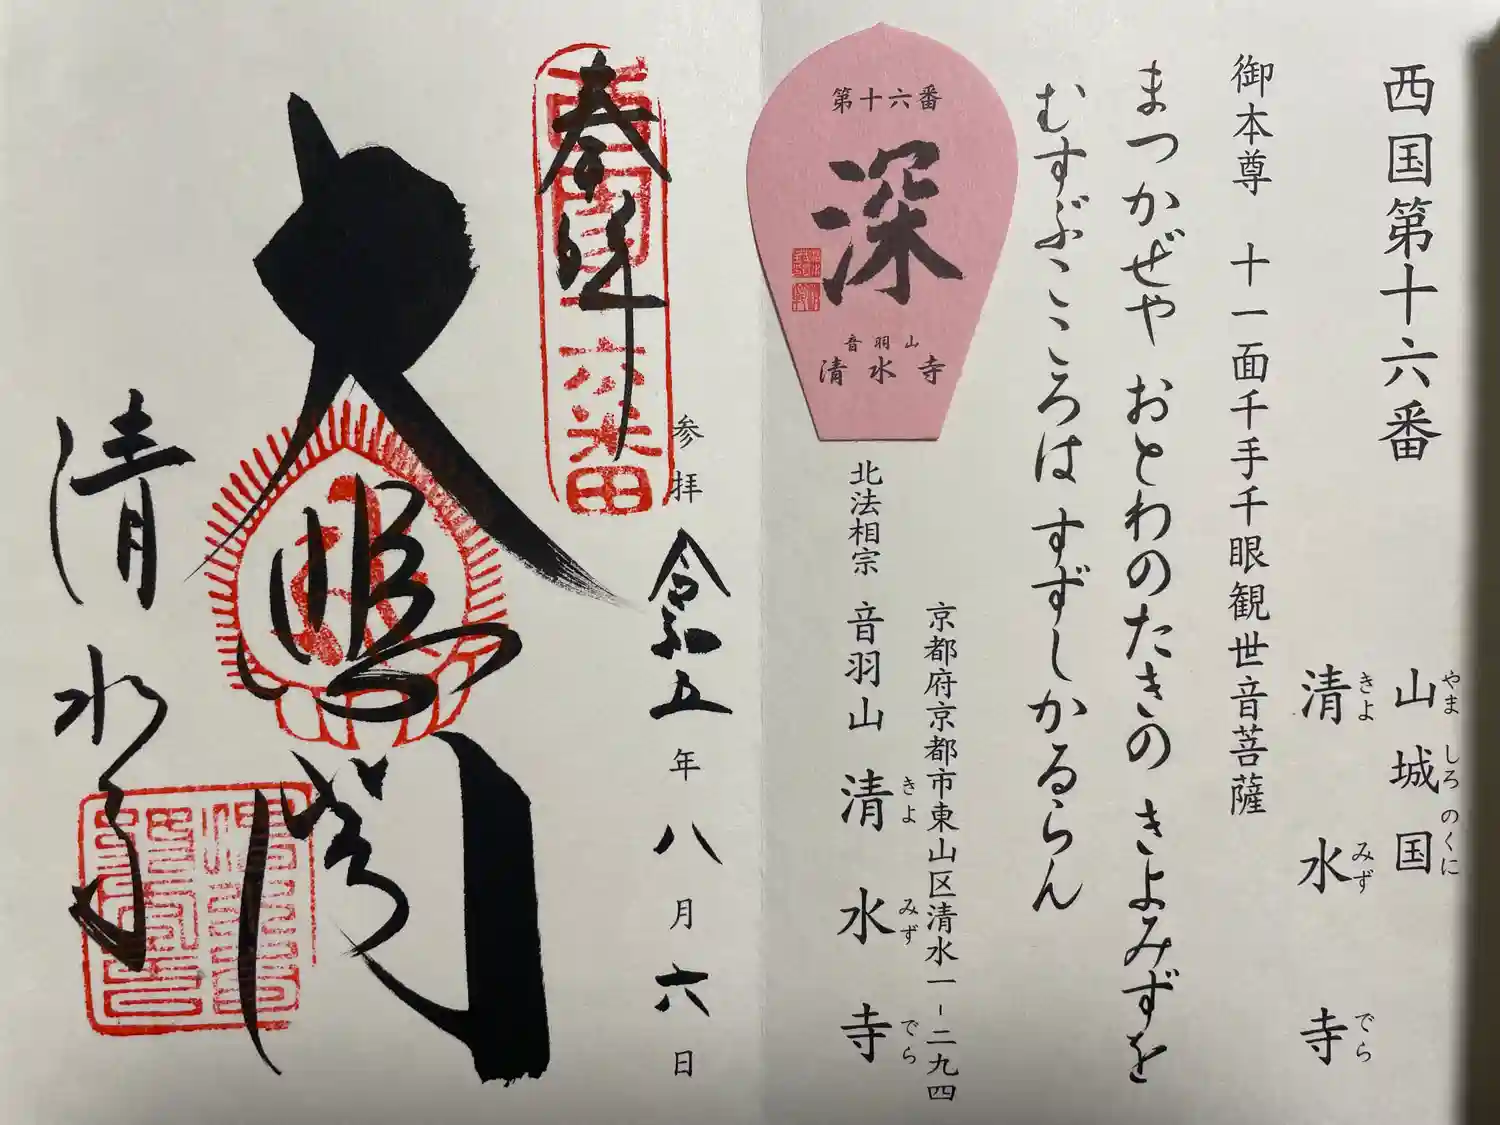 西国第十六番
山城国
やましろのくに
清水寺
きよみずでら
御本尊 十一面千手千眼観世音菩薩
まつかぜや おとわのたきの きよみずを
むすぶこゝろは すずしかるらん
第十六番
深
音羽山
清水寺
京都府京都市東山区清水一-二九四
北法相宗 音羽山 清水寺
きよみずでら
参拝 令和五年八月六日
奉拝
西国十六番
大悲閣
清水寺